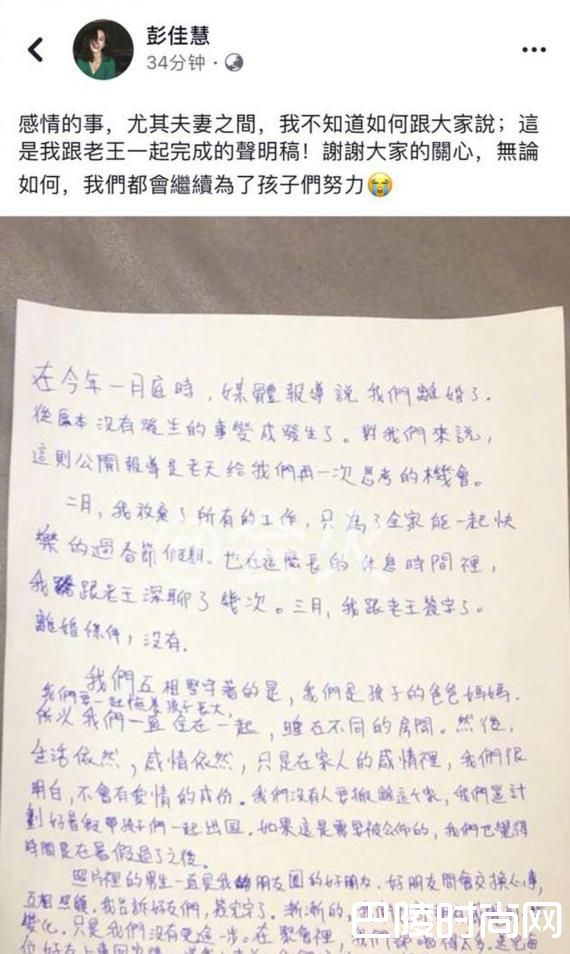 彭佳慧
34分钟
感情的事，尤其夫妻之間，我不知道如何跟大家說；這
是我跟老王一起完成的聲明稿！謝謝大家的關心，無論
如何，我們都會繼續為了孩子們努力😭
在今年一月底時，媒體報導說我們離婚了.
從原本沒有發生的事變成發生了。對我們來說，
這則公開報導是老天給我們再一次思考的機會。
二月，我放棄了所有的工作，只為了全家能一起快
樂的過春節假期. 也在這麼長的休息時間裡，
我跟老王深聊了幾次。三月，我跟老王簽字了。
離婚條件，沒有.
我們互相堅守著的是，我們是孩子的爸爸媽媽.
我們要一起陪著孩子長大，
所以我們一直住在一起，睡在不同的房間。然後，
生活依然，感情依然，只是在家人的感情裡，我們很
明白，不會有愛情的成份。我們沒有人要搬離這個家，我們還計
劃好暑假帶孩子們一起出國. 如果這是需要被公佈的，我們也覺得
時間是在暑假過了之後。
照片裡的男生一直是我朋友圈的好朋友. 好朋友間會交換心事，
互相照顧. 我告訴好友們，簽完字了. 漸漸的，
變化. 只是我們沒有更進一步。在聚會裡，我們都喝得太多.
巴陵时尚网